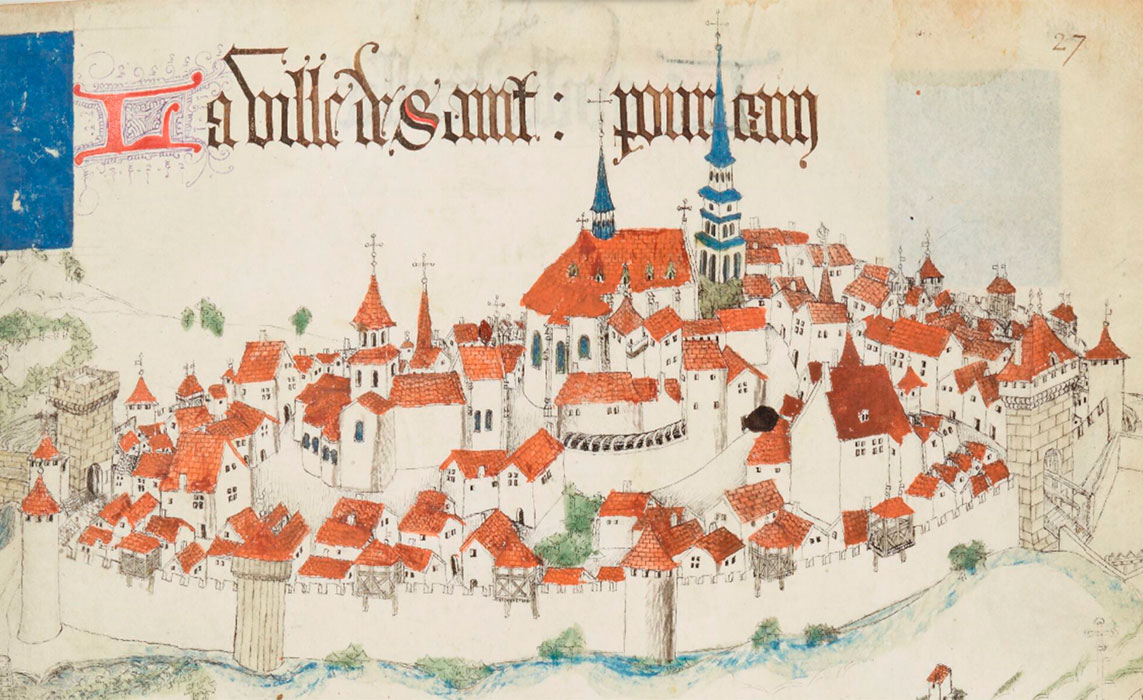 27
La ville de Sainct : pourcain